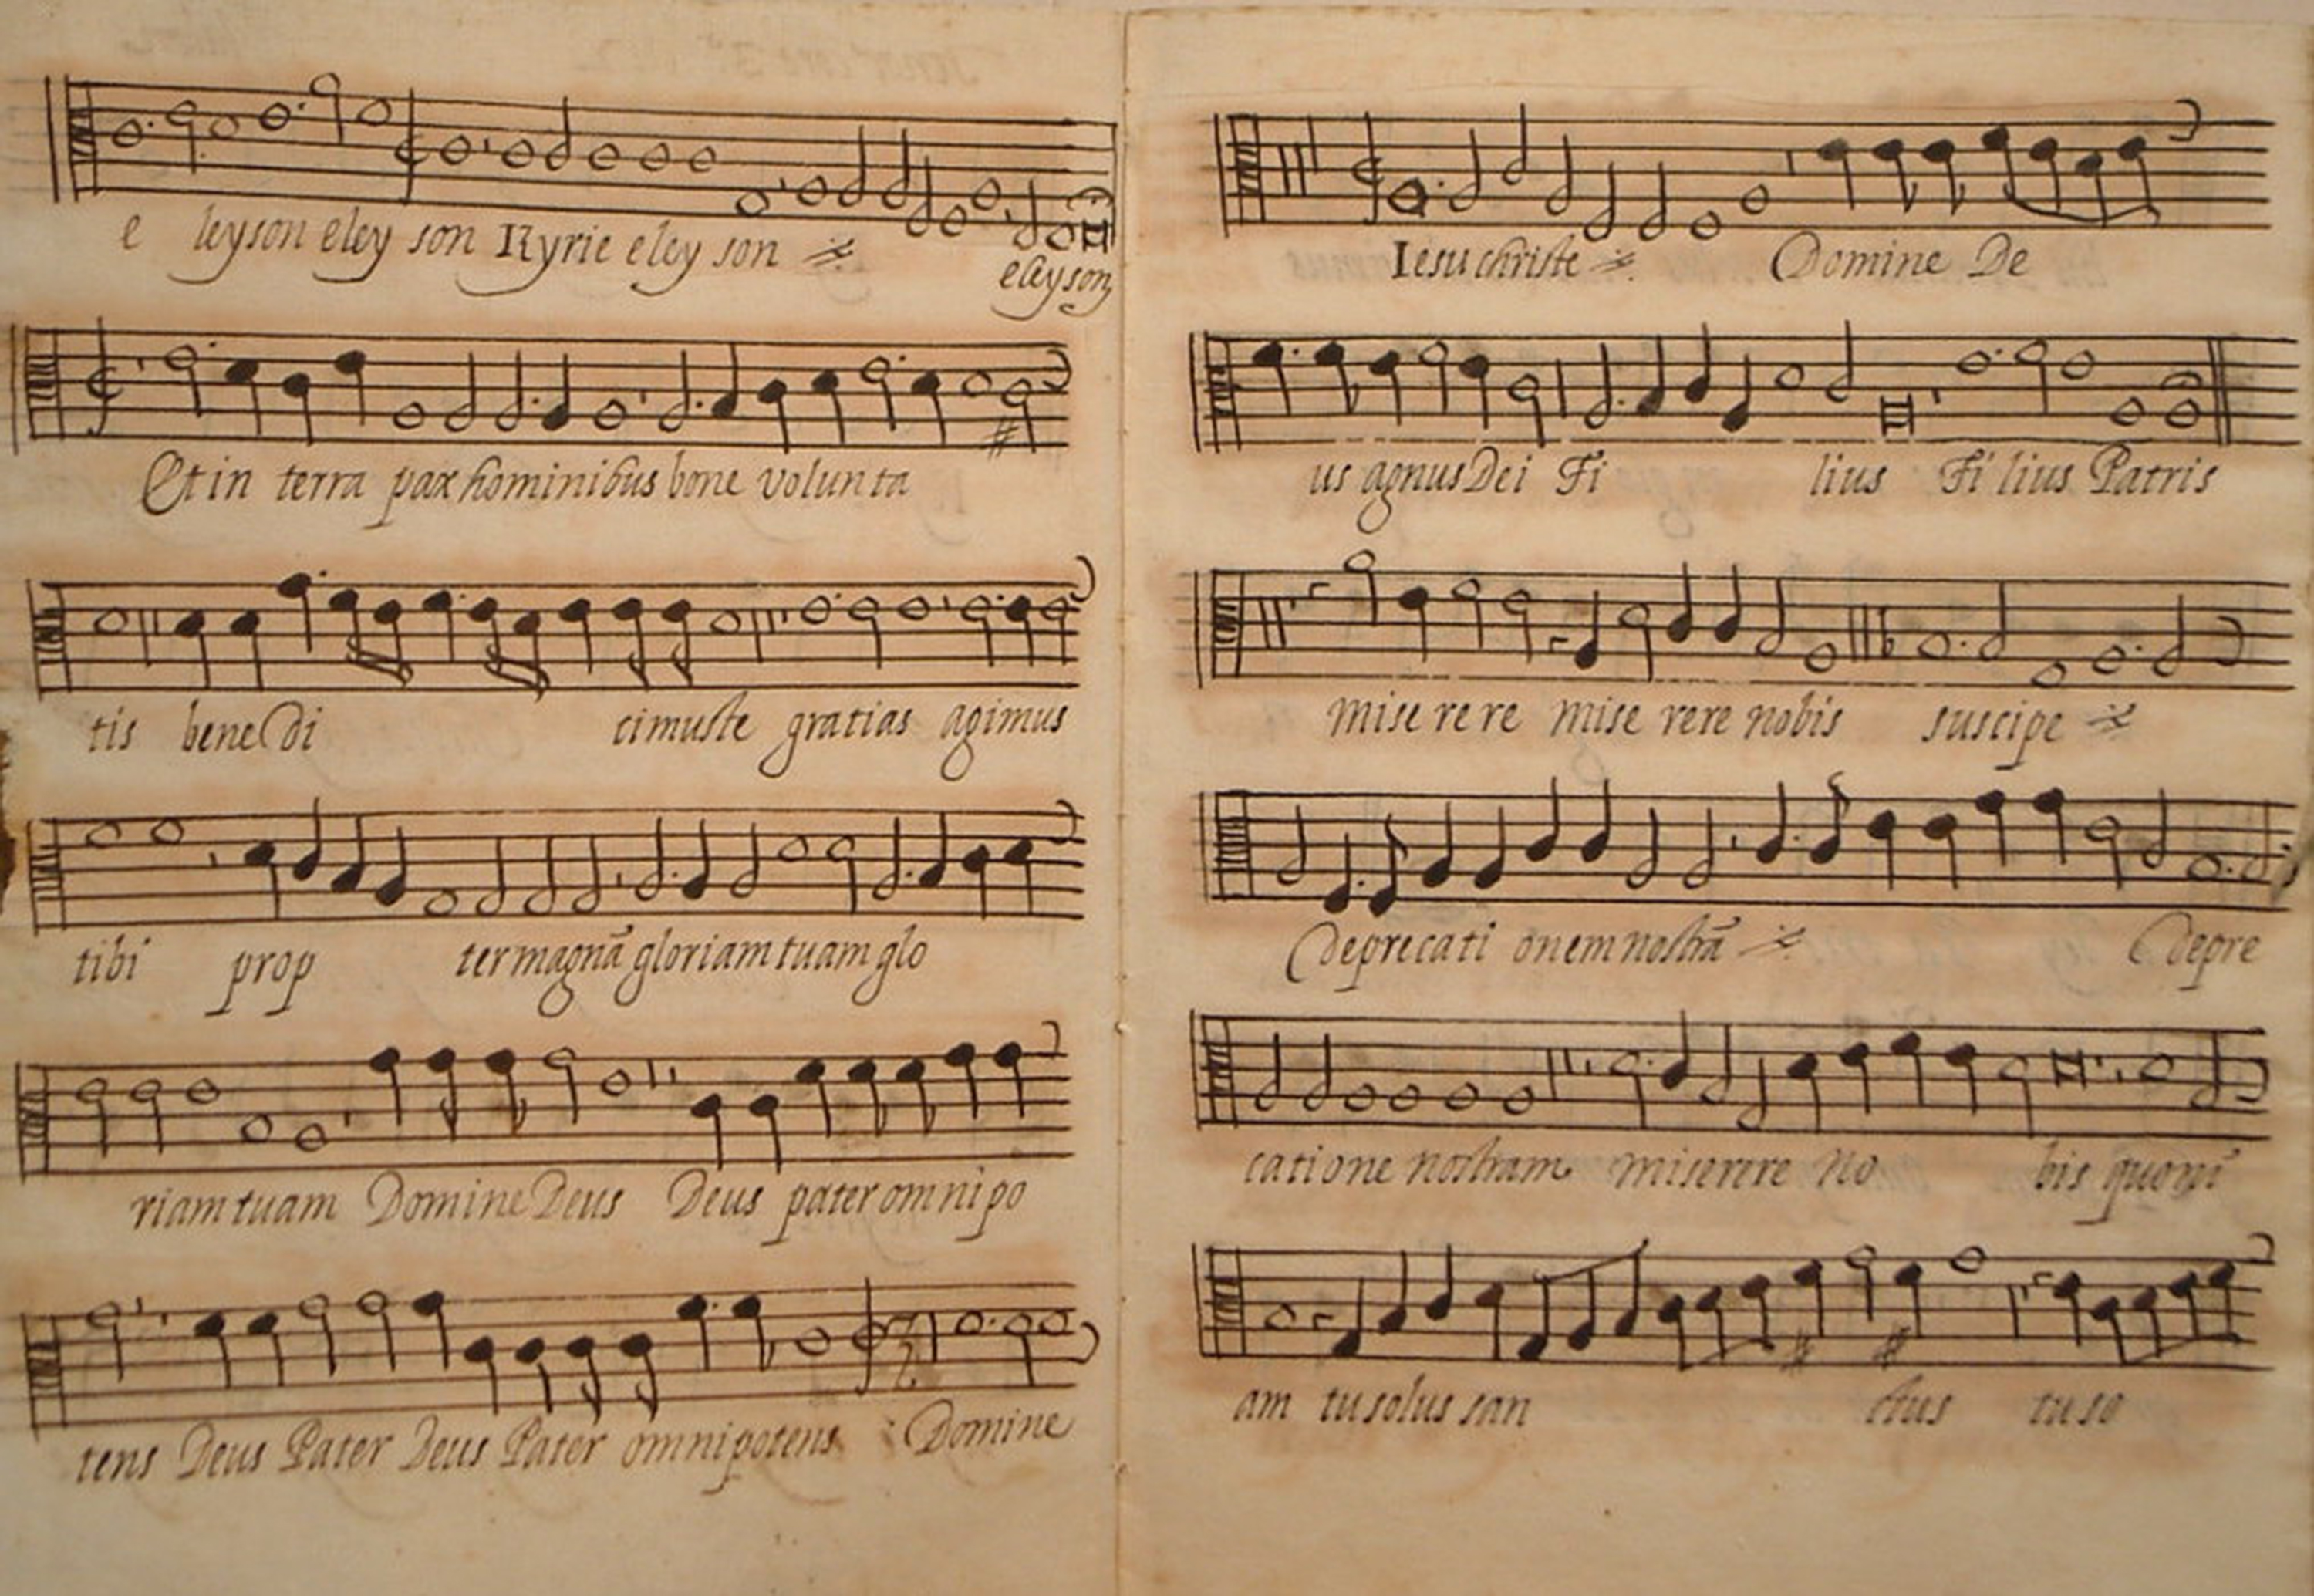 e leyson eley son Kyrie eley son
eleyson
Et in terra pax hominibus bone volun ta
tis bene di cimuste gratias agimus
tibi prop ter magnã gloriam tuam glo
riam tuam Domine Deus Deus pater omni po
tens Deus Pater Deus Pater omnipotens Domine
Iesu christe Domine De
us agnus Dei Fi lius Fi lius Patris
mise re re mise rere nobis suscipe
Deprecati onem nostrã Depre
catione nostram miserere no bis quoni
am tu solus san ctus tu so